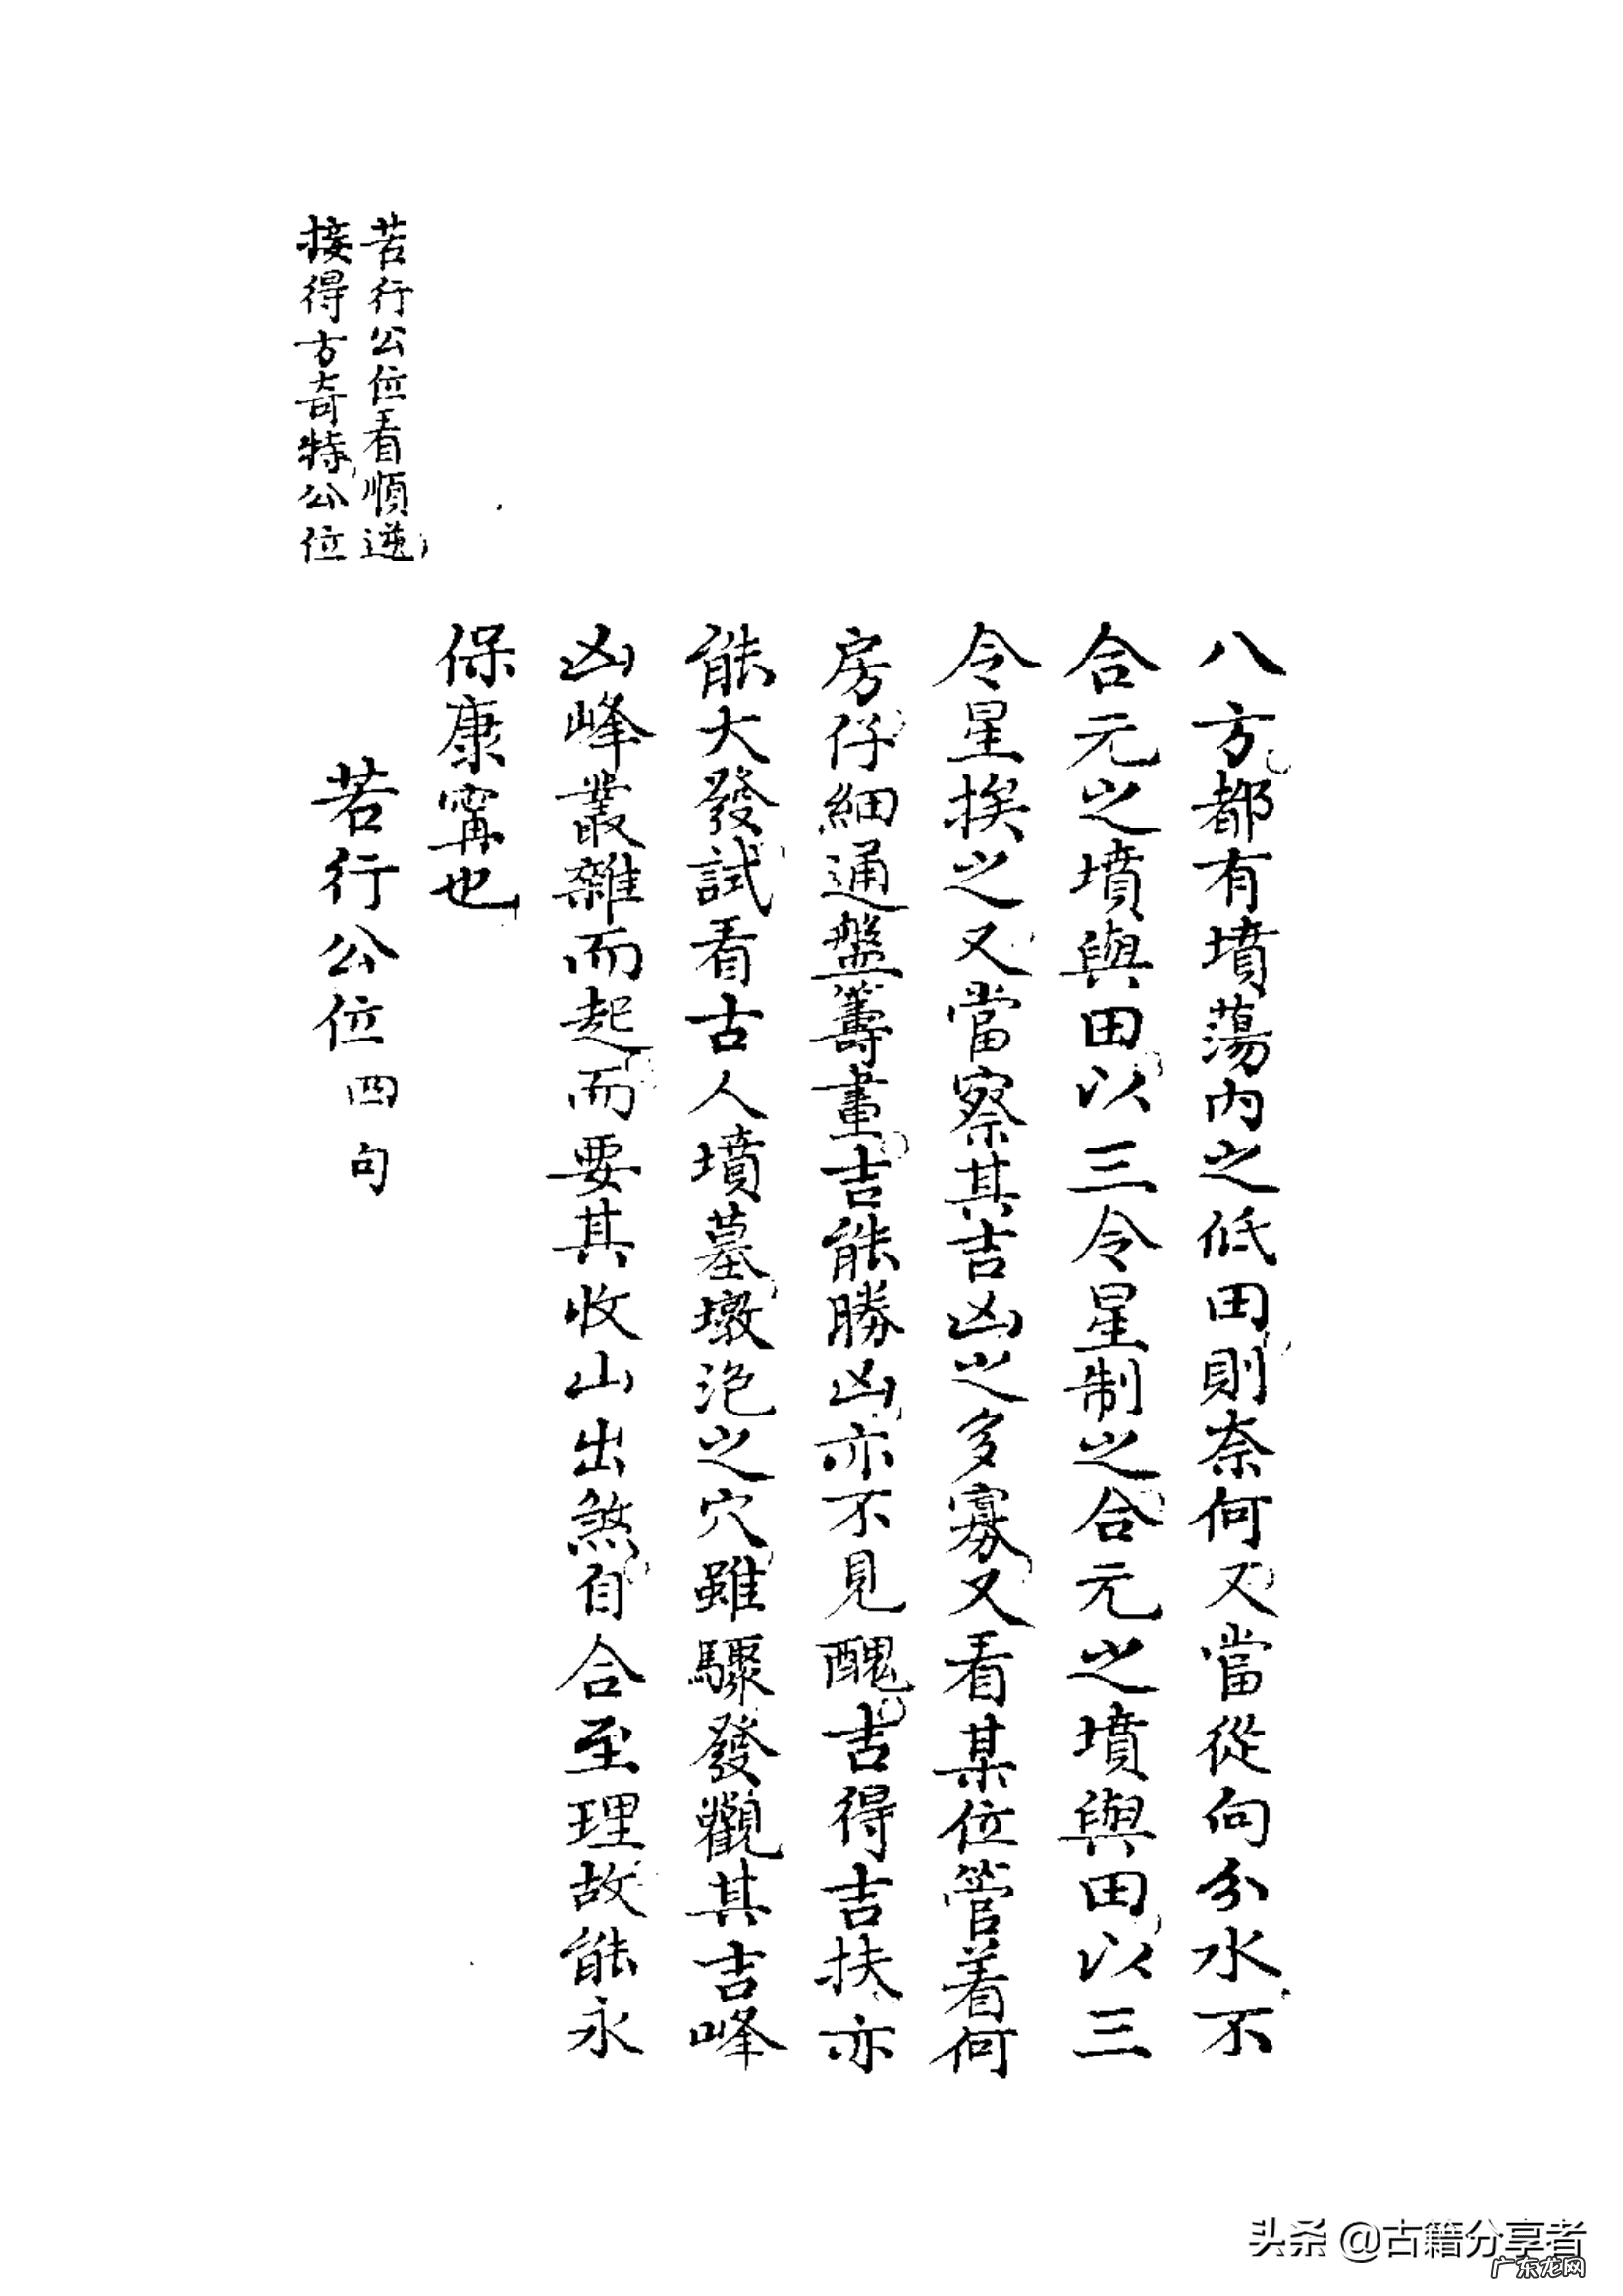 八方都有墳蕩內之低田則奈何又當從向分水不
合元之墳與田以三令星制之合元之墳與田以三
令星挨之又當察其吉凶之多寡又看某位管着何
房仔細通盤籌畫吉能勝凶亦不見醜吉得吉扶亦
能大發試看古人墳墓墩泡之穴雖驟發觀其吉峰
凶峰叢雜而起而要其收山出煞自合至理故能永
保康寗也
若行公位看順逆
接得方奇特公位
若行公位四句
头条 @古籍分享者
广东龙网